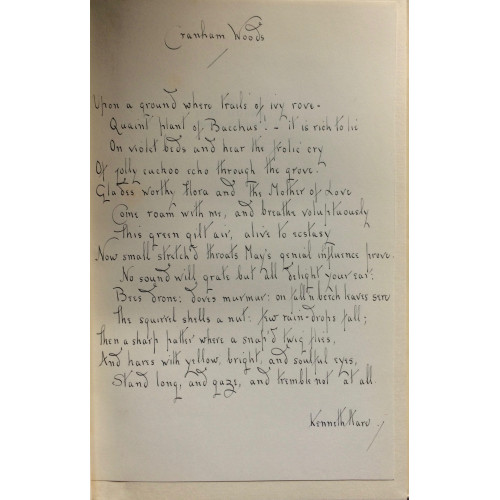 Cranham Woods
Upon a ground where trails of ivy rove -
Quaint plant of Bacchus! - it is rich to lie
On violet beds and hear the frolic cry
Of jolly cuckoo echo through the grove.
Glades worthy Flora and The Mother of Love
Come roam with me, and breathe voluptuously
This green gilt air, alive to ecstasy
Now small stretch'd throats May's genial influence prove.
No sound will grate but all delight your ear:
Bees drone; doves murmur; on fall'n beech leaves sere
The squirrel shells a nut: few rain-drops fall;
Then a sharp patter where a snap'd twig flies,
And hares with yellow, bright, and soulful eyes,
Stand long, and gaze, and tremble not at all.
Kenneth Hare